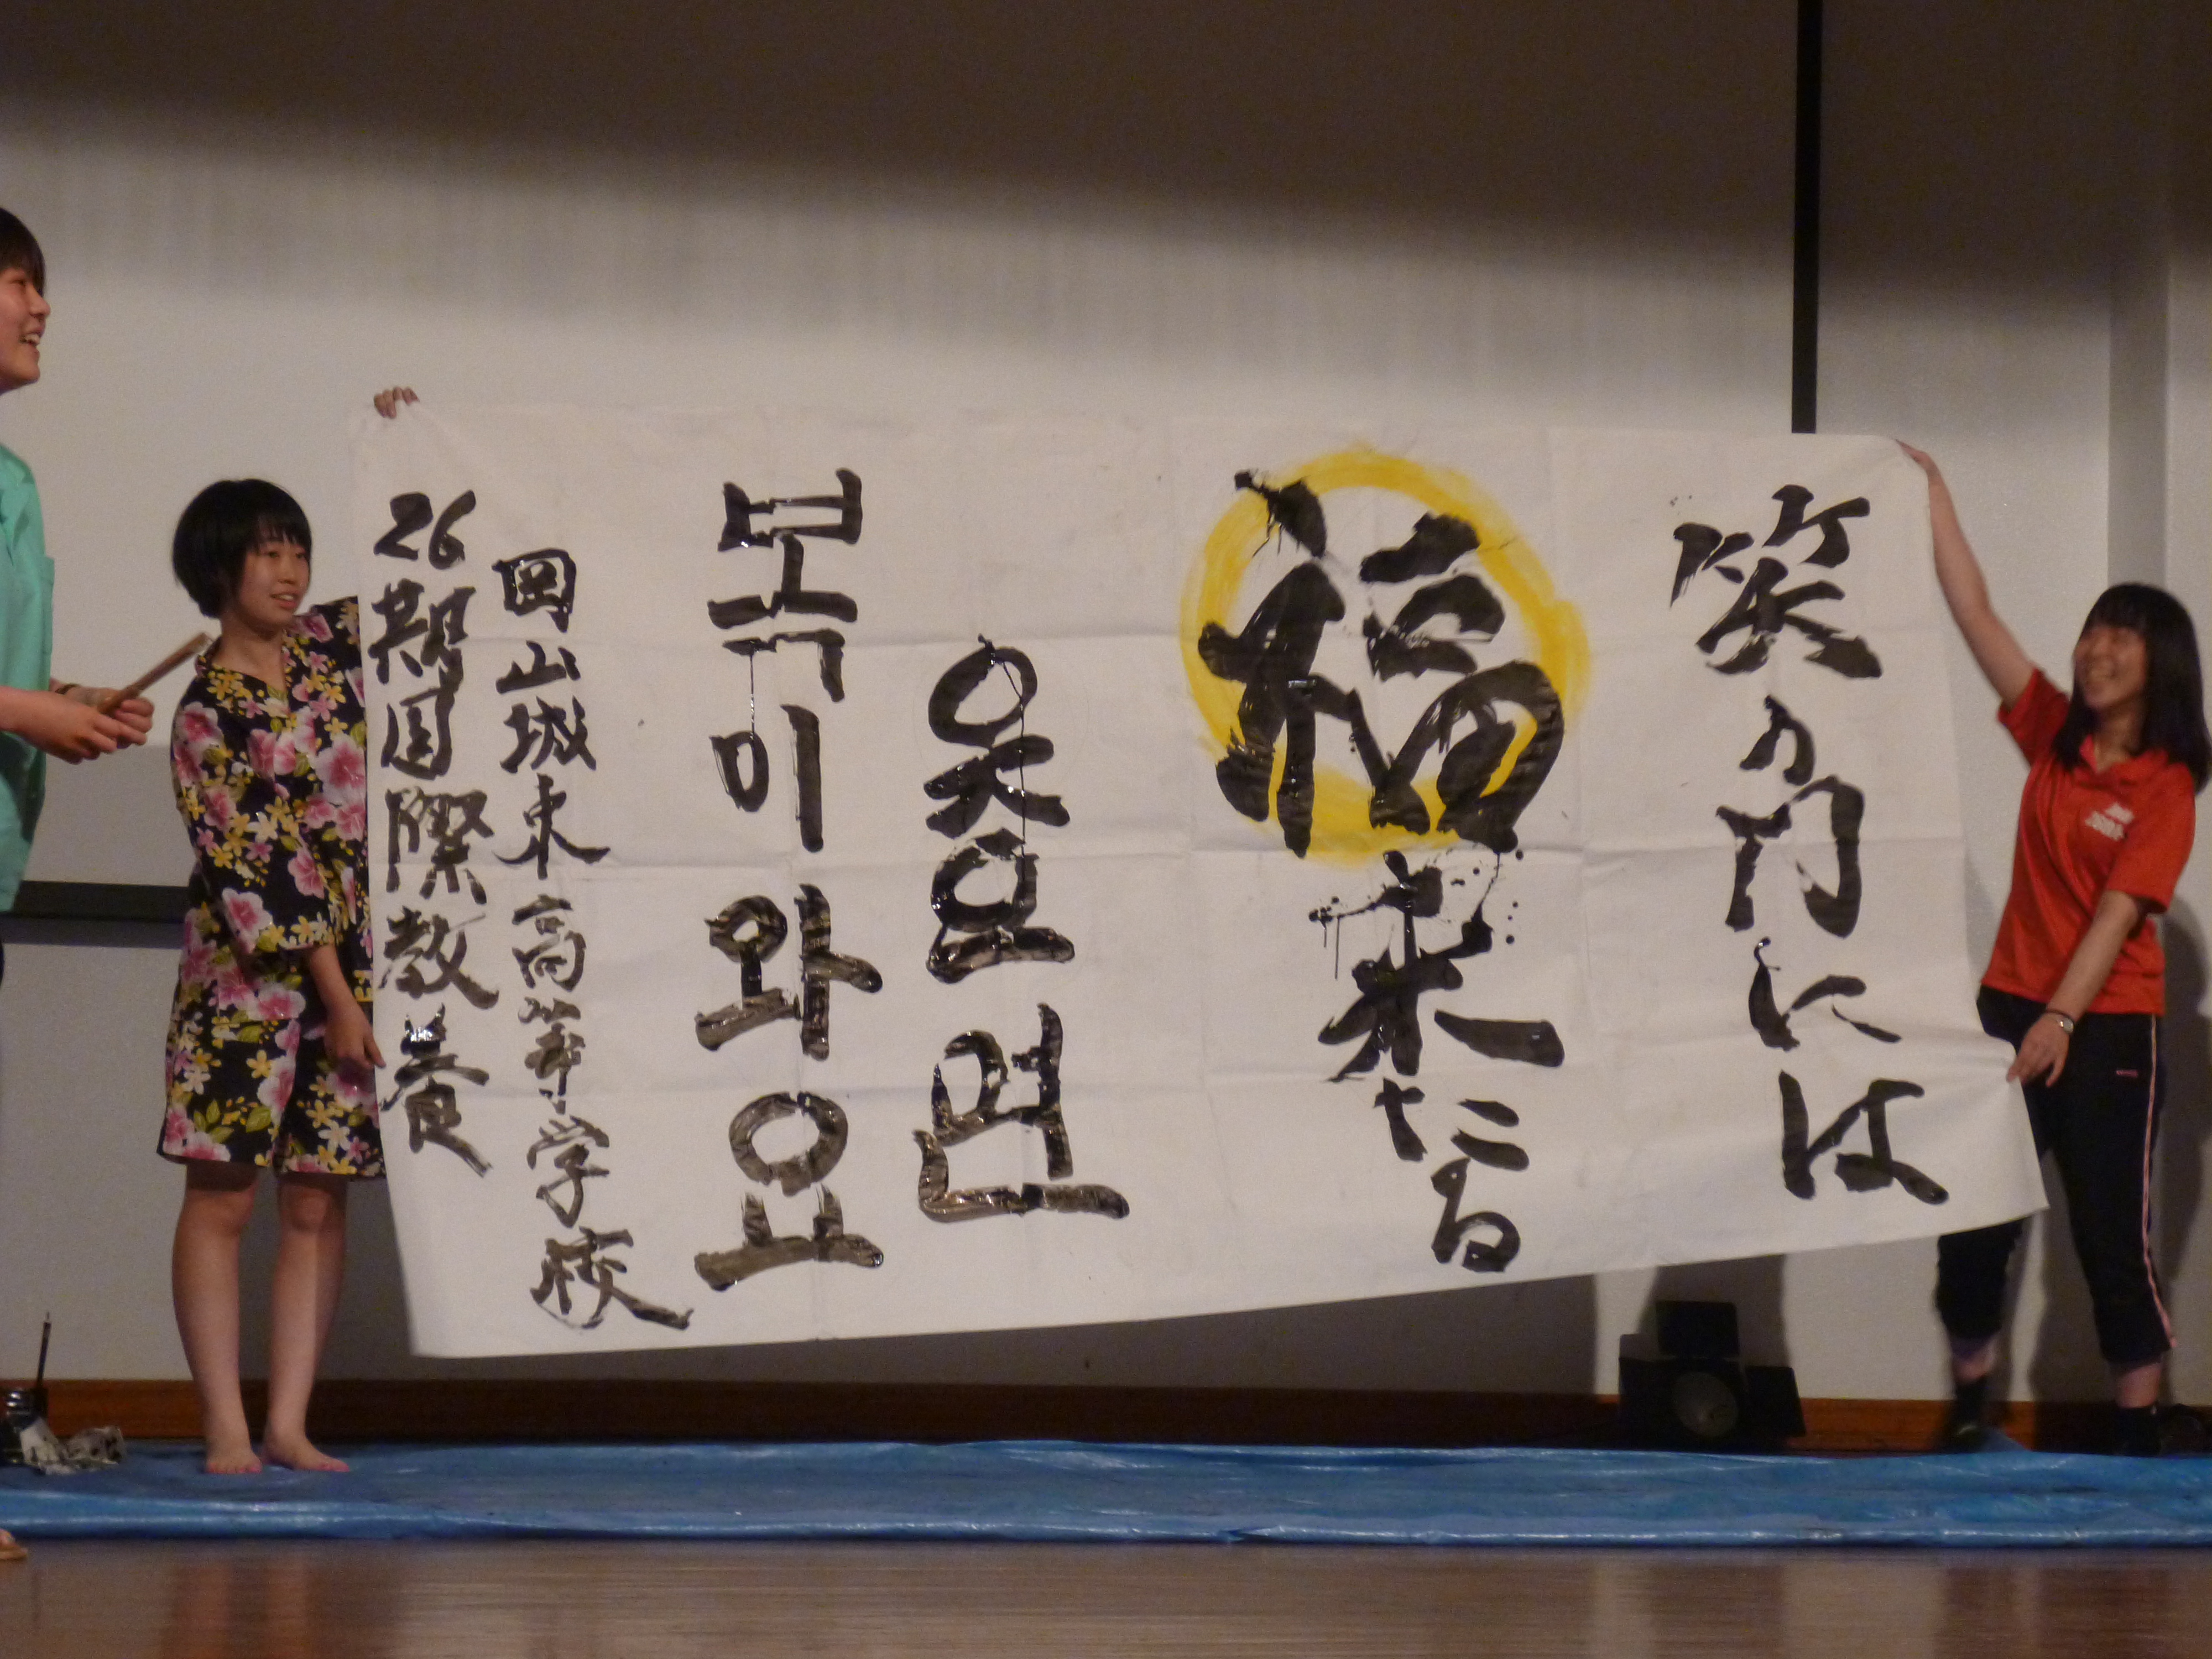 笑の門には
福来たる
웃으면
복이와요
岡山城東高等学校
26期国際教養